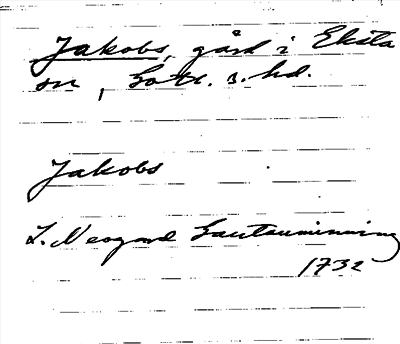 Jakobs, gård i Eksta
sn, Gotl. s. hd.
Jakobs
L. Neogard Gautauminning
1732